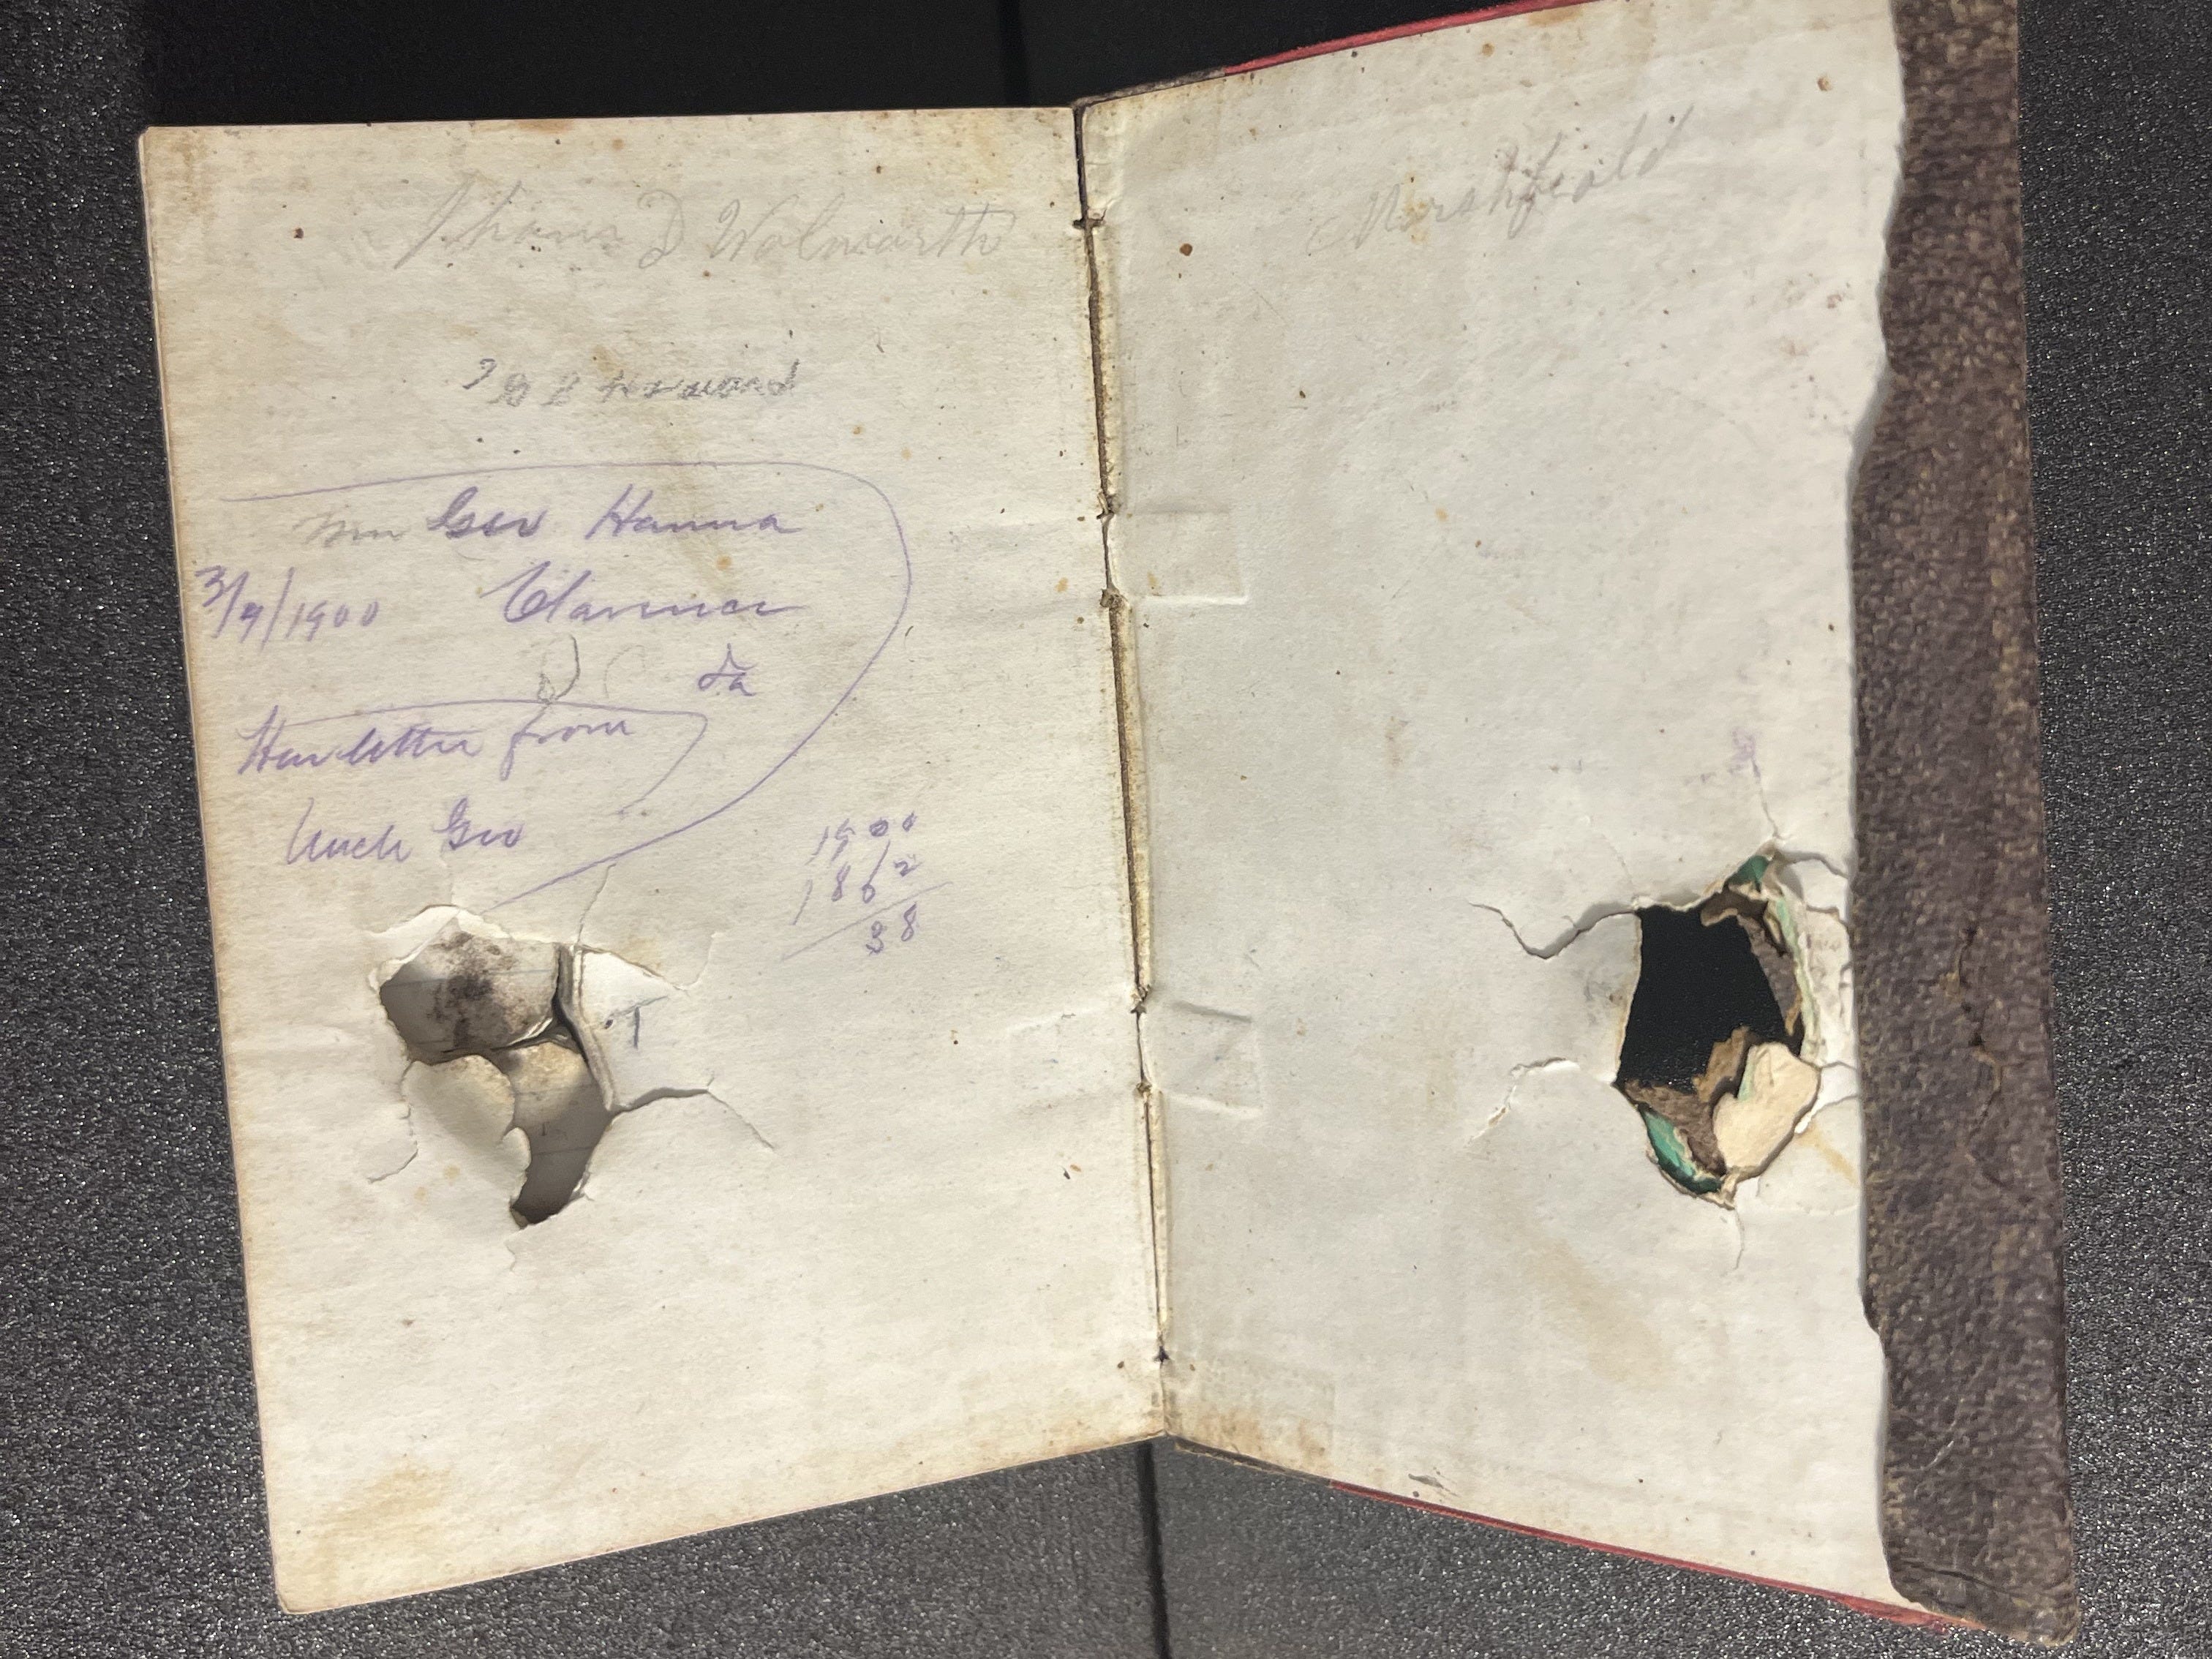 D Walworth
Geo Hanna
3/9/1900 Clarence
Ia
Her letter from
Uncle Geo
1900
1862
38
Marshfield